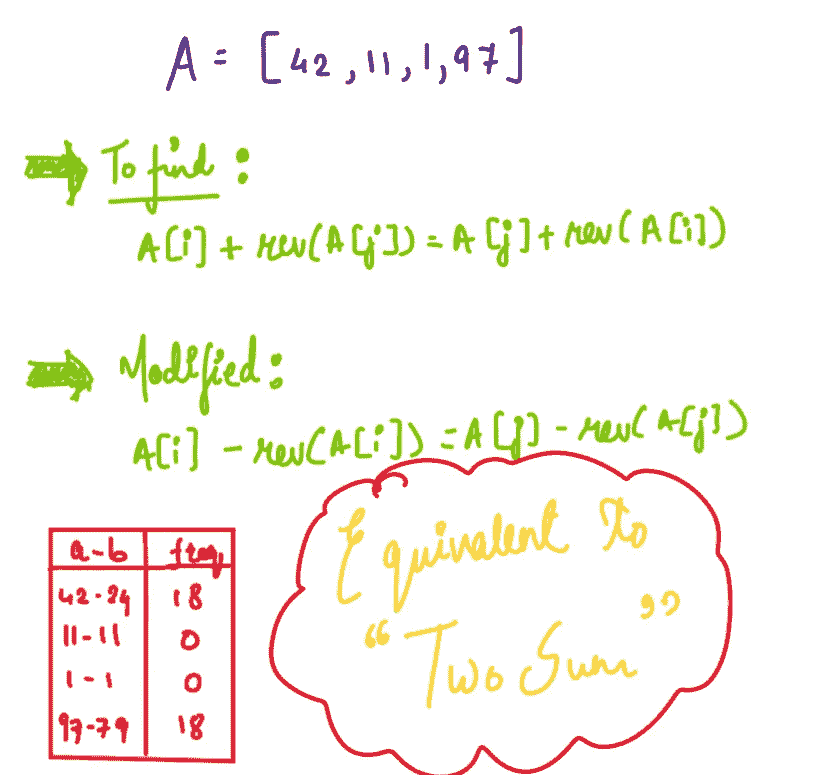 A = [42, 11, 1, 97]
To find :
A[i] + rev(A[j]) = A[j] + rev(A[i])
Modified :
A[i] - rev(A[i]) = A[j] - rev(A[j])
a-b freq
42-24 18
11-11 0
1-1 0
97-79 18
Equivalent to
"Two Sum"